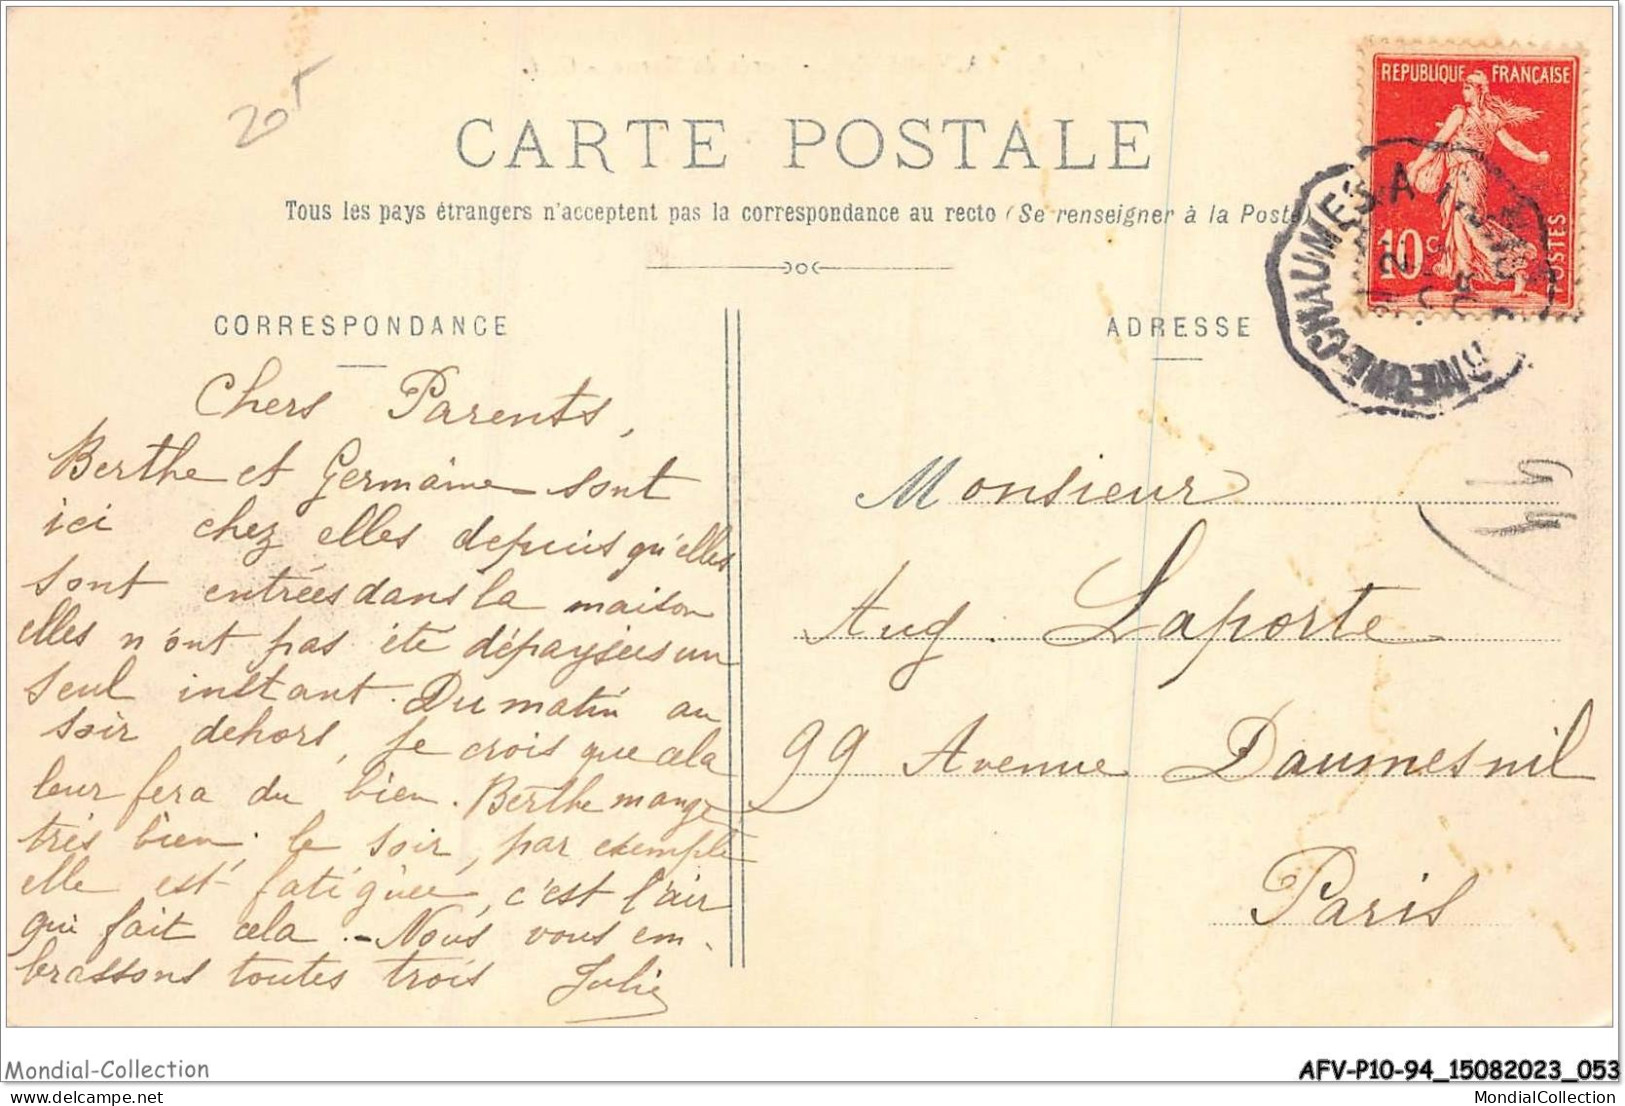 205
CARTE POSTALE
Tous les pays étrangers n'acceptent pas la correspondance au recto (Se renseigner à la Poste)
REPUBLIQUE FRANÇAISE
10c
POSTES
CHAUMES A
CORRESPONDANCE
ADRESSE
Chers Parents,
Berthe et Germaine sont
ici chez elles depuis qu'elles
sont entrées dans la maison
elles n'ont pas été dépaysées un
seul instant. Du matin au
soir dehors, je crois que cela
leur fera du bien. Berthe mange
très bien, le soir, par exemple
elle est fatiguée, c'est l'air
qui fait cela. - Nous vous em-
brassons toutes trois Julie
Monsieur
Aug. Laporte
99 Avenue Daumesnil
Paris
Mondial-Collection
AFV-P10-94_15082023_053
delcampe.net
MondialCollection